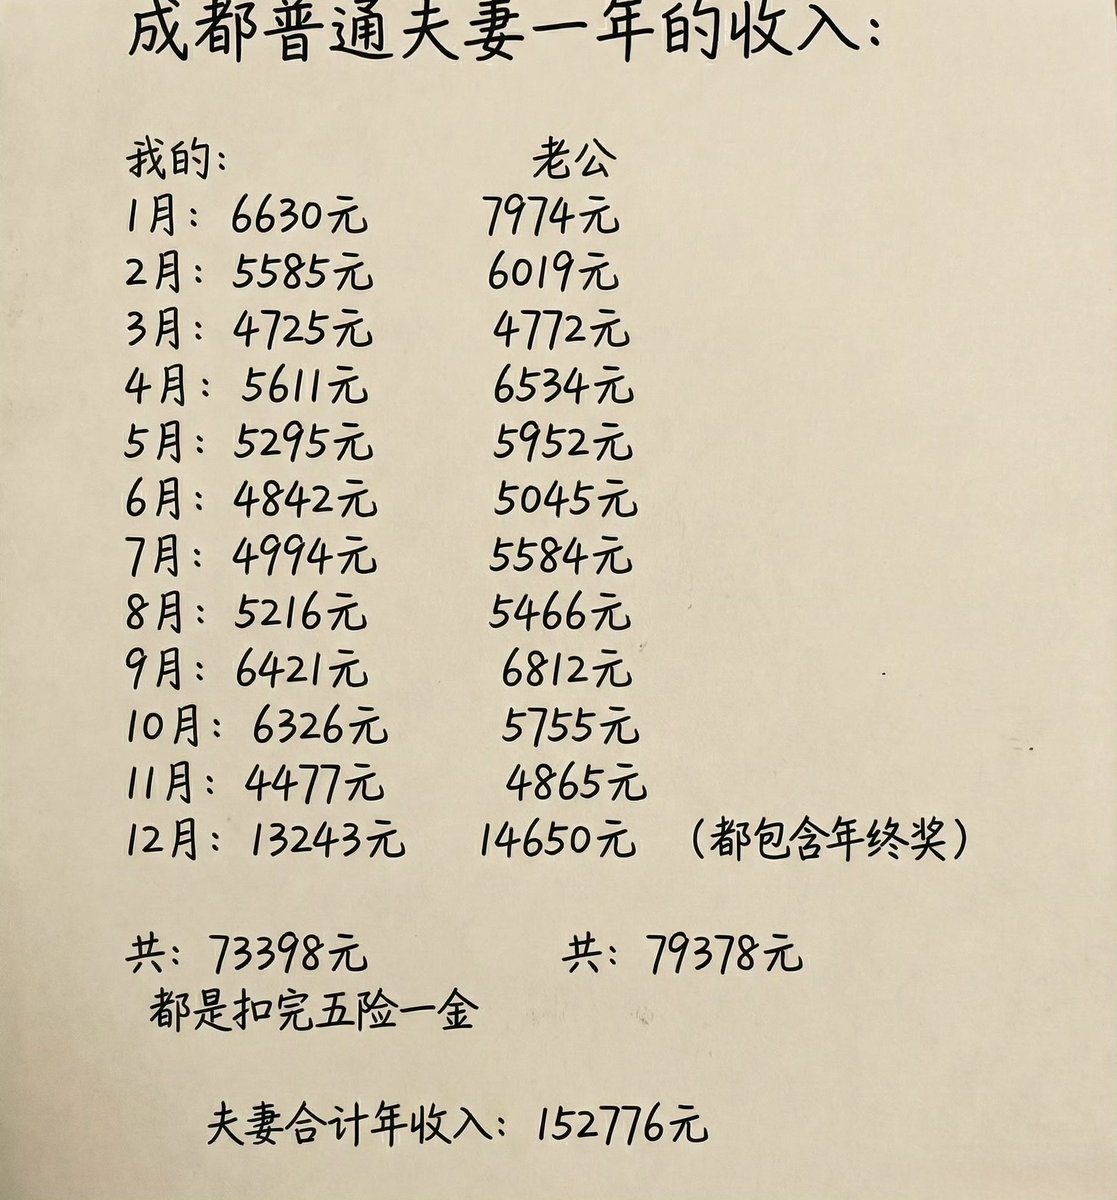 成都普通夫妻一年的收入:
我的: 老公
1月: 6630元 7974元
2月: 5585元 6019元
3月: 4725元 4772元
4月: 5611元 6534元
5月: 5295元 5952元
6月: 4842元 5045元
7月: 4994元 5584元
8月: 5216元 5466元
9月: 6421元 6812元
10月: 6326元 5755元
11月: 4477元 4865元
12月: 13243元 14650元 (都包含年终奖)
共: 73398元 共: 79378元
都是扣完五险一金
夫妻合计年收入: 152776元